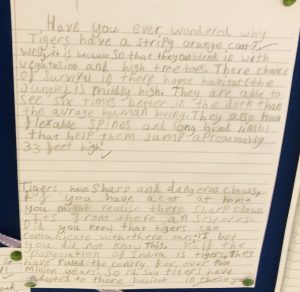 Have you ever wondered why
Tigers have a stripy orange coat?
Well, it is because so that they can blend in with
vegatasion and high tree tops. There chance
of survival in there home habitat (the
jungle) is mildly high. They are able to
see six times better in the dark than
the avrage human being. They also have
flexable spines and long hind limbs
that help them jump
33 feet high.
Tigers have sharp and dangeros claws,
If you have a cat at home
you might realise there sharp claws
its from there
Did you know that tigers can
comunicate with there
you did not know this, half the
population of India is tigers, they
ruled the contry for over two
million years! So I'll say tigers have
adapted to there habitat in these